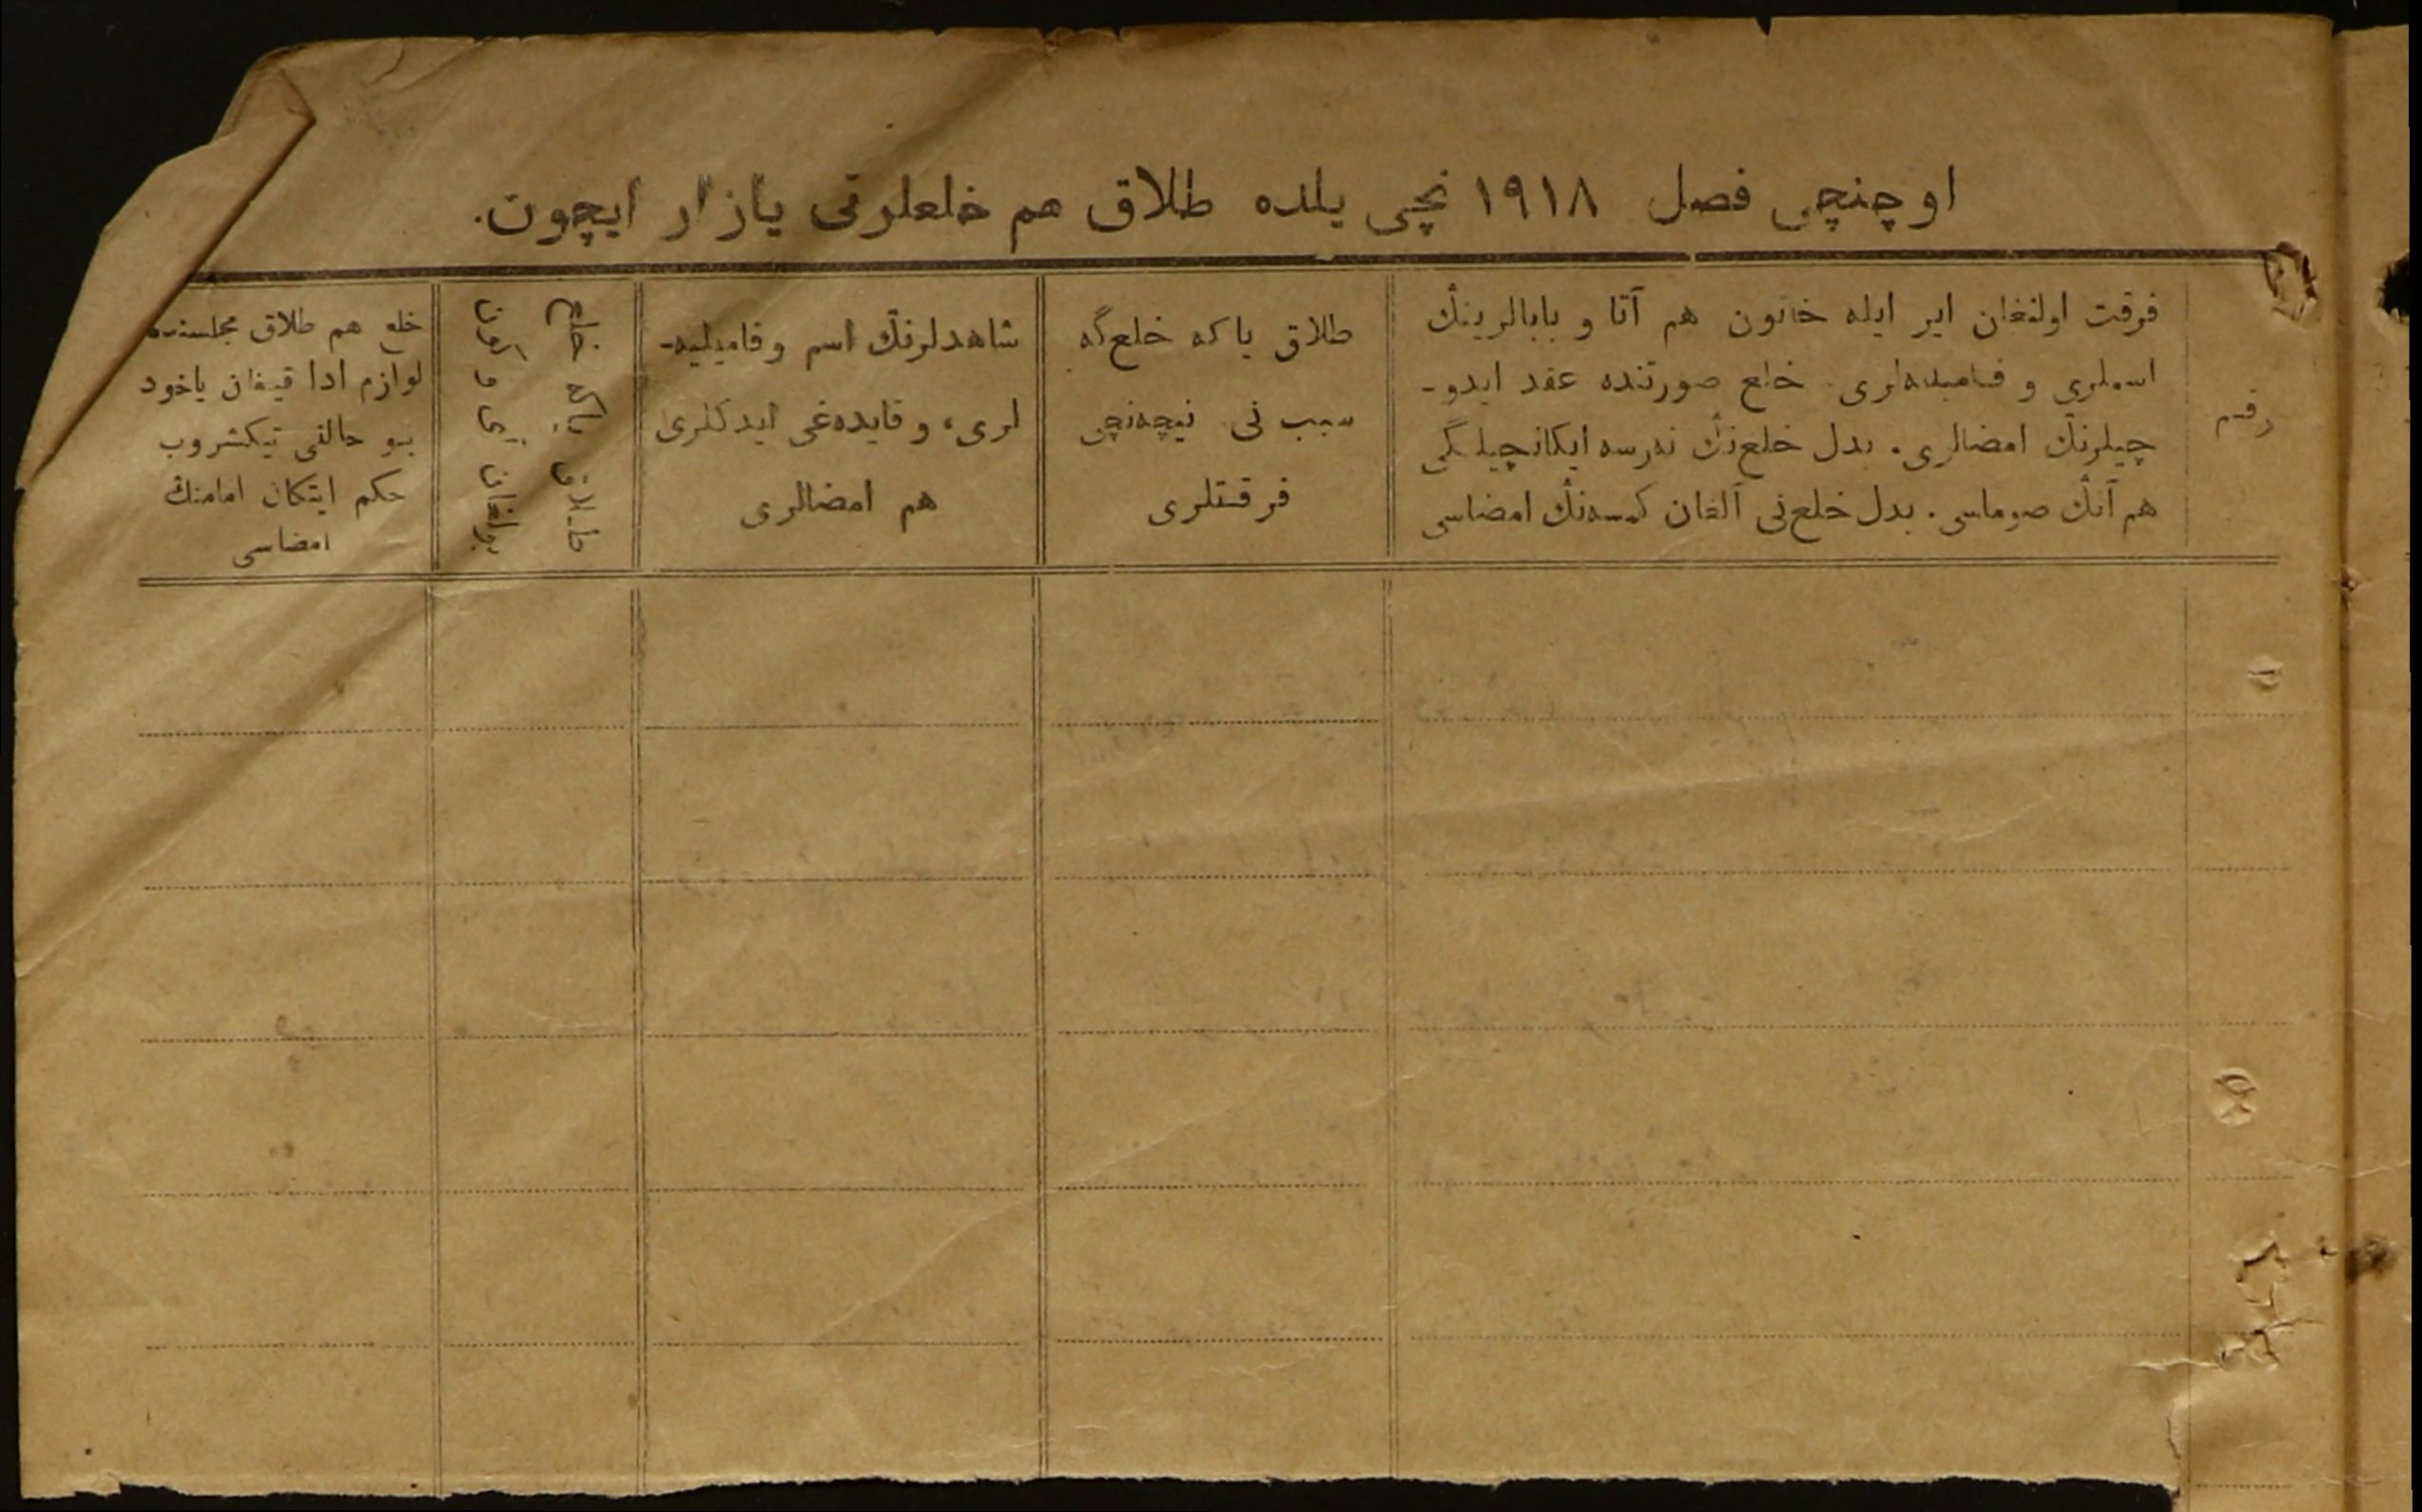 اوچنچی فصل ١٩١٨ نچی یلده طلاق هم خلعلرنی یازار ایچون.
رقم
فرقت اولنغان ایر ایله خاتون هم آتا و بابالرینڭ
اسملری و فامیلیه‌لری. خلع صورتنده عقد ایدو-
چیلرنڭ امضالری. بدل خلع‌نڭ نه‌رسه ایکانچیلگی
هم آنڭ صوماسی. بدل خلع‌نی آلغان کمسه‌نڭ امضاسی
طلاق یا که خلع‌گه
سبب نی. نیچه‌نچی
فرقتلری
شاهدلرنڭ اسم و فامیلیه-
لری، و قایده‌غی ایدکلری
هم امضالری
خلع یاکه طلاق
بولغان آی و کون
خلع هم طلاق مجلسنده
لوازم ادا قیلغان یاخود
بو حالنی تیکشروب
حکم ایتکان امامنڭ
امضاسی